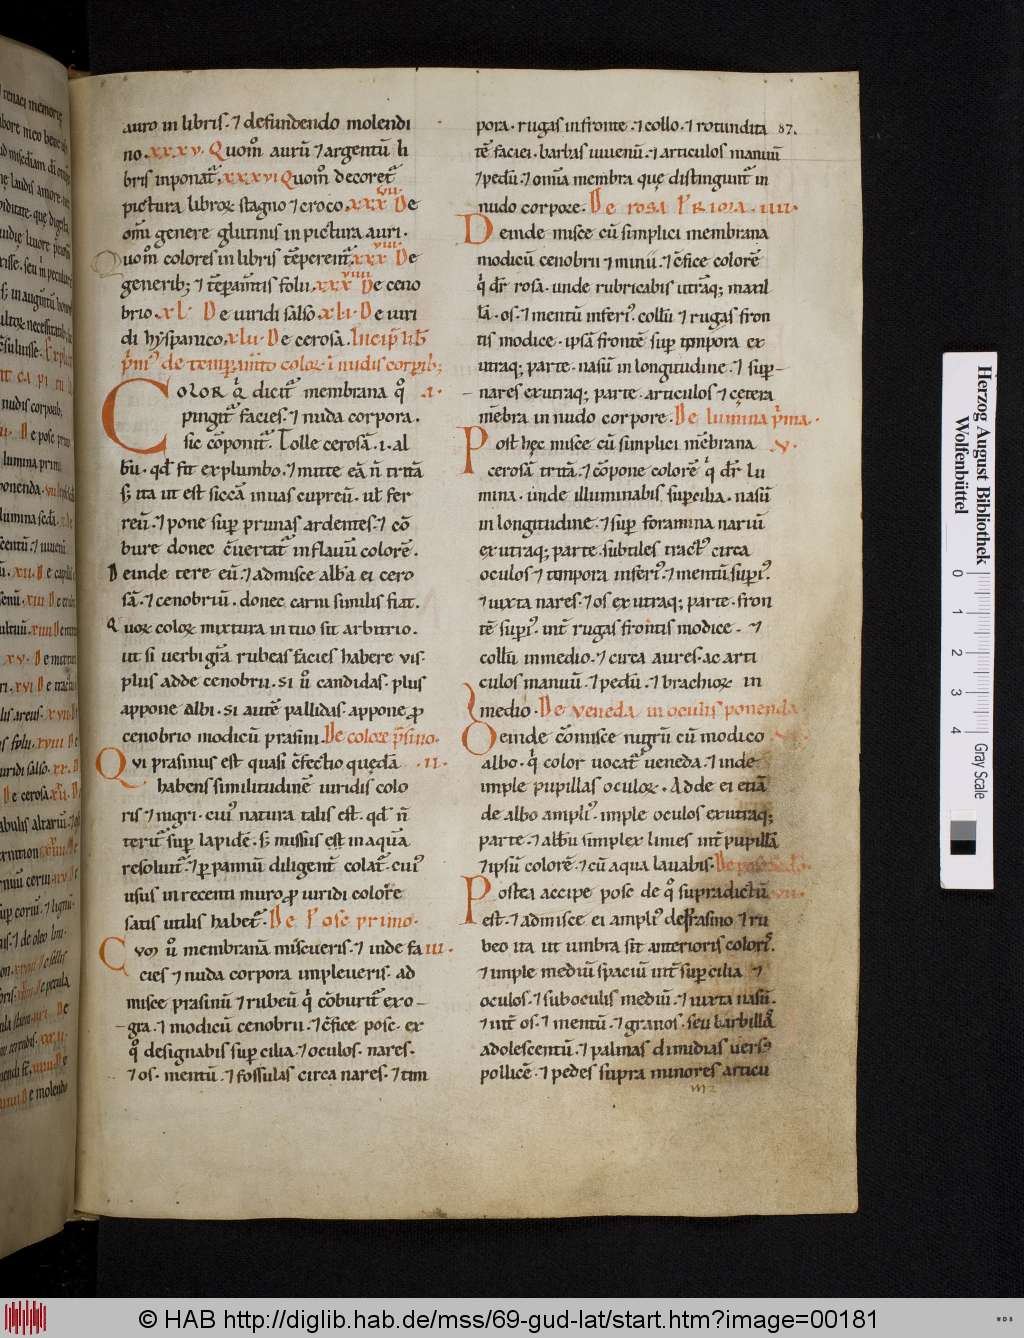 auro in libris. ⁊ defundendo molendi
no. xxxv. Quom̄ aurū ⁊ argentū li
bris inponat᷑. xxxvi Quom̄ decoret᷑
pictura libroꝝ stagno ⁊ croco. xxxvii. De
om̄i genere glutinis in pictura auri.
Quom̄ colores in libris tēperent᷑. xxxviii. De
generib; ⁊ tēpam̄tis folii. xxxviiii De ceno
brio. xl. De uiridi salso. xli. De uiri
di hyspanico. xlii. De cerosa. Incip̄ lib̄
p̄m᷒ de temperam̄to coloꝝ ī nudis corpib;
Color q̇ dicit᷑ membrana q̊ .i.
pingit᷑ facies. ⁊ nuda corpora.
sic cōponit᷑. Tolle cerosā. i. al
bū. qd̄ fit ex plumbo. ⁊ mitte eā n̄ tritā
s; ita ut est siccā in uas cupreū. ul̄ fer
reū. ⁊ pone sup prunas ardentes. ⁊ cō
bure donec c̄uertat᷑ in flauū colorē.
Deinde tere eū. ⁊ admisce albā ei cero
sā. ⁊ cenobriū. donec carni similis fiat.
Quoꝝ coloꝝ mixtura in tuo sit arbitrio.
ut si uerbi grā rubeas facies habere uis.
plus adde cenobrii. si ū candidas. plus
appone albi. si autē pallidas. appone ꝓ
cenobrio modicū prasini. De coloꝛe p̄sino.
Qvi prasinus est quasi c̄fectio quędā .ii.
habens similitudinē uiridis colo
ris ⁊ nigri. cui᷒ natura talis est. qd̄ n̄
terit᷑ sup lapidē. s; missus est in aquā
resoluit᷑. ⁊ ꝑ pannū diligent᷑ colat᷑. cui᷒
usus in recenti muro ꝓ uiridi colore
satis utilis habet᷑. De Posc primo.
Cvm ū membranā miscueris. ⁊ inde fa iii.
cies ⁊ nuda corpora impleueris. ad
misce prasinū ⁊ rubeū q̇ cōburit᷑ ex o
gra. ⁊ modicū cenobrii. ⁊ c̄fice posc. ex
q̊ designabis supcilia. ⁊ oculos. nares.
⁊ os. mentū. ⁊ fossulas circa nares. ⁊ tim
87.
pora. rugas in fronte. ⁊ collo. ⁊ rotundita
tē faciei. barbas iuuenū. ⁊ articulos manuū
⁊ pedū. ⁊ om̄ia membra quę distingunt᷑ in
nudo corpore. De rosa Prima. iiii.
Deinde misce cū simplici membrana
modicū cenobrii ⁊ minii. ⁊ c̄fice colorē
q̇ dr̄ rosa. unde rubricabis utrāq; maxil
lā. os. ⁊ mentū inferi᷒. collū ⁊ rugas fron
tis modice. ipsā frontē sup timpora ex
utraq; parte. nasū in longitudine. ⁊ sup
nares ex utraq; parte. articulos ⁊ cętera
mēbra in nudo corpore. De lumina p̄ma.
Post hęc misce cū simplici mēbrana .v.
cerosā tritā. ⁊ cōpone colorē q̇ dr̄ lu
mina. unde illuminabis supcilia. nasū
in longitudine. ⁊ sup foramina nariū
ex utraq; parte. subtiles tract᷒ circa
oculos ⁊ timpora inferi᷒. ⁊ mentū supi᷒.
⁊ iuxta nares. ⁊ os ex utraq; parte. fron
tē supi᷒. int᷑ rugas frontis modice. ⁊
collū in medio. ⁊ circa aures. ac arti
culos manuū. ⁊ pedū. ⁊ brachioꝝ in
medio. De veneda in oculis ponenda
Deinde cōmisce nigrū cū modico
albo. q̇ color uocat᷑ ueneda. ⁊ inde
imple pupillas oculoꝝ. Adde ei etiā
de albo ampli᷒. imple oculos ex utraq;
parte. ⁊ albū simplex linies int᷑ pupillā
⁊ ipsū colorē. ⁊ cū aqua lauabis.
Postea accipe posc de q̊ supradictū vii.
est. ⁊ admisce ei ampli᷒ de prasino ⁊ ru
beo ita ut umbra sit anterioris coloris.
⁊ imple mediū spaciū int᷑ supcilia ⁊
oculos. ⁊ sub oculis mediū. ⁊ iuxta nasū.
⁊ int᷑ os. ⁊ mentū. ⁊ granos. seu barbillā
adolescentū. ⁊ palmas dimidias uers᷒
pollicē. ⁊ pedes supra minores articu
Herzog August Bibliothek
Wolfenbüttel
0 1 2 3 4
Gray Scale
© HAB http://diglib.hab.de/mss/69-gud-lat/start.htm?image=00181